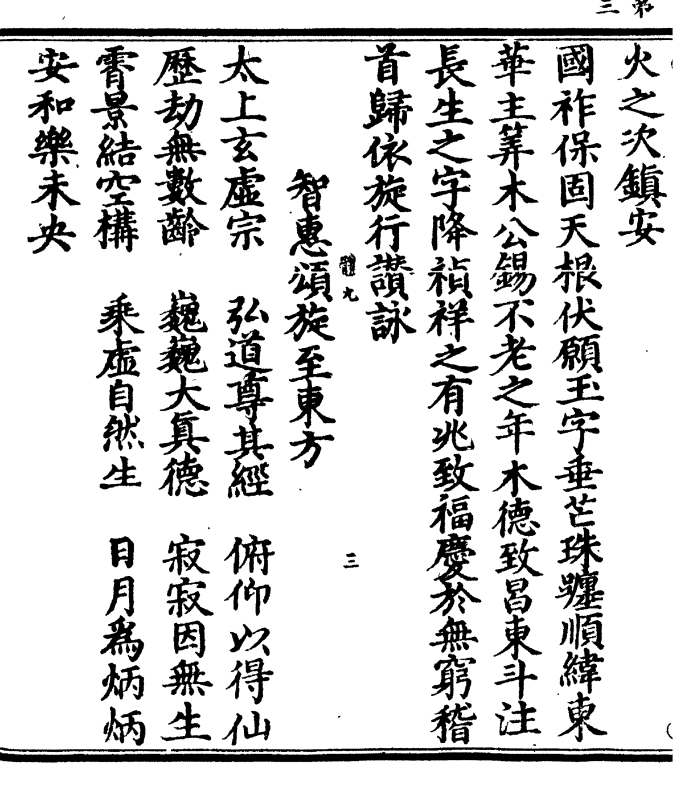 火之次鎮安
國祚保固天根伏願玉字垂芒珠躔順緯東
華主筭木公錫不老之年木德致昌東斗注
長生之字降禎祥之有兆致福慶於無窮稽
首歸依旋行讃詠
智惠頌旋至東方
體九
三
太上玄虛宗 弘道尊其經 俯仰以得仙
歷劫無數齡 巍巍大眞德 寂寂因無生
霄景結空構 乘虛自然生 日月爲炳炳
安和樂未央